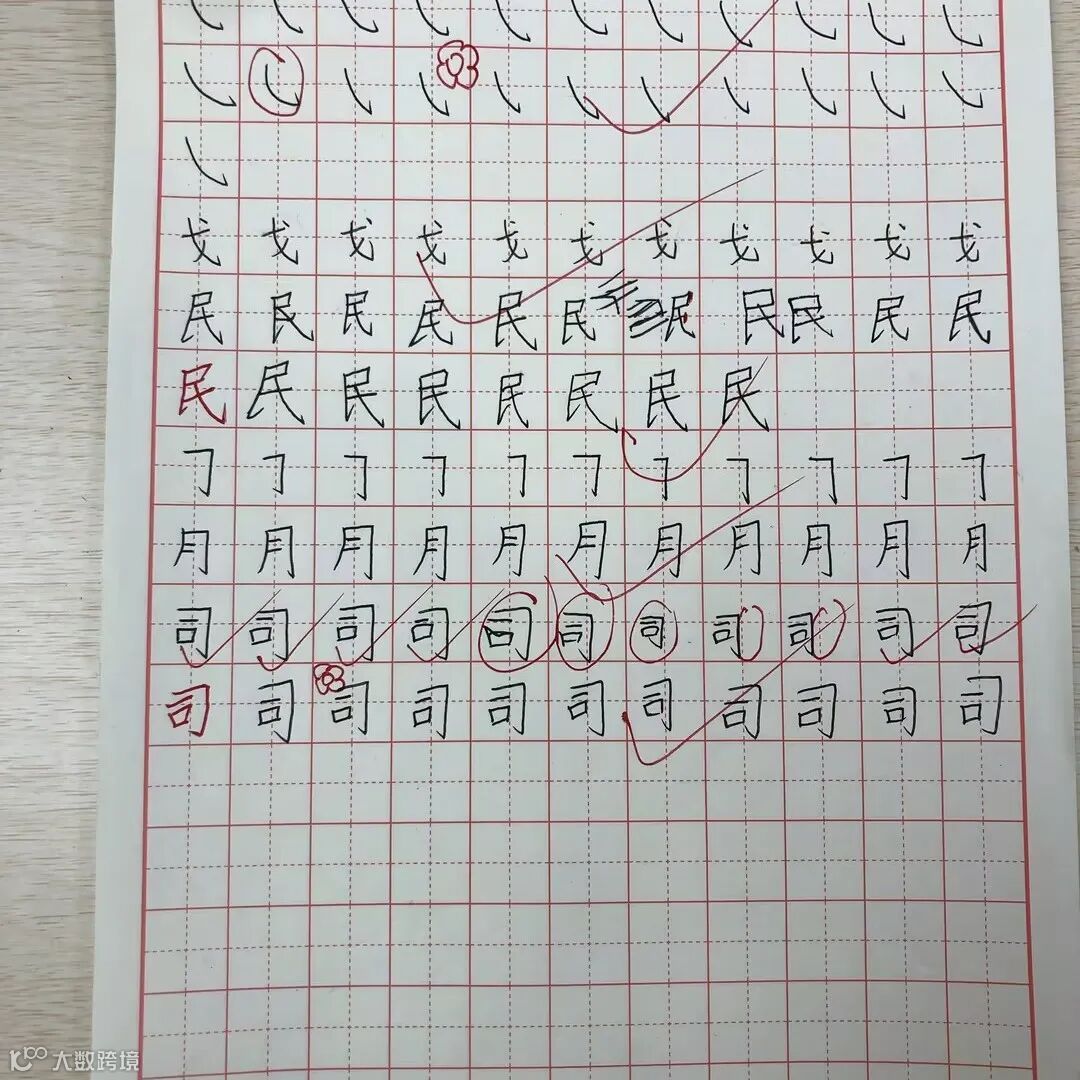 ㇂㇂㇂㇂㇂㇂㇂㇂㇂㇂㇂
㇂㇂㇂㇂㇂㇂㇂㇂㇂㇂㇂
㇂
戈戈戈戈戈戈戈戈戈戈戈
民民民民民民民民民民民
民民民民民民民民
㇆㇆㇆㇆㇆㇆㇆㇆㇆㇆㇆
月月月月月月月月月月月
司司司司司司司司司司司
司司司司司司司司司司司
大数跨境